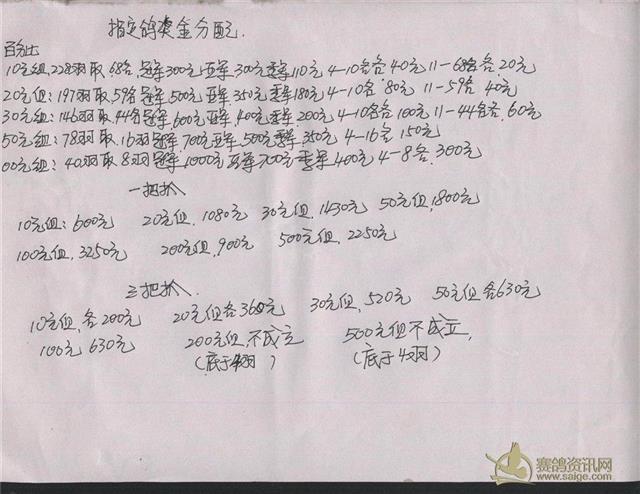 指定鸽奖金分配.
百分比
10元组,228羽取68名,冠军300元亚军,300元季军110元 4-10名各40元 11-68名各20元
20元组:197羽取59名冠军500元亚军,350元季军180元 4-10名80元 11-59名40元
30元组:146羽取44名冠军,600元亚军,400元季军200元 4-10名各100元 11-44名各,60元
50元组:78羽取.16羽冠军,700元亚军,500元季军,350元 4-16名150元
00元组:40羽取8羽冠军,1000元亚军700元季军400元 4-8名.300元
一把抓
10元组:600元 20元组.1080元 30元组.1430元 50元组,1800元
100元组,3250元 200元组,900元 500元组.2250元
三把抓.
10元组,各200元 20元组各360元 30元组,520元 50元组各630元
100元630元 200元组,不成立 500元组不成立,
(底于4羽) (底于4羽)
赛鸽资讯网
www.saige.com